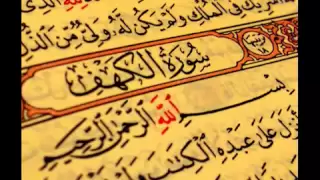 شَرِيكٌ فِي الْمُلْكِ وَلَمْ يَكُن لَّهُ وَلِيٌّ مِّنَ الذُّلِّ
سُورَةُ الْكَهْفِ
بِسْمِ اللَّهِ الرَّحْمَٰنِ الرَّحِيمِ
عَلَىٰ عَبْدِهِ الْكِتَٰبَ وَلَمْ